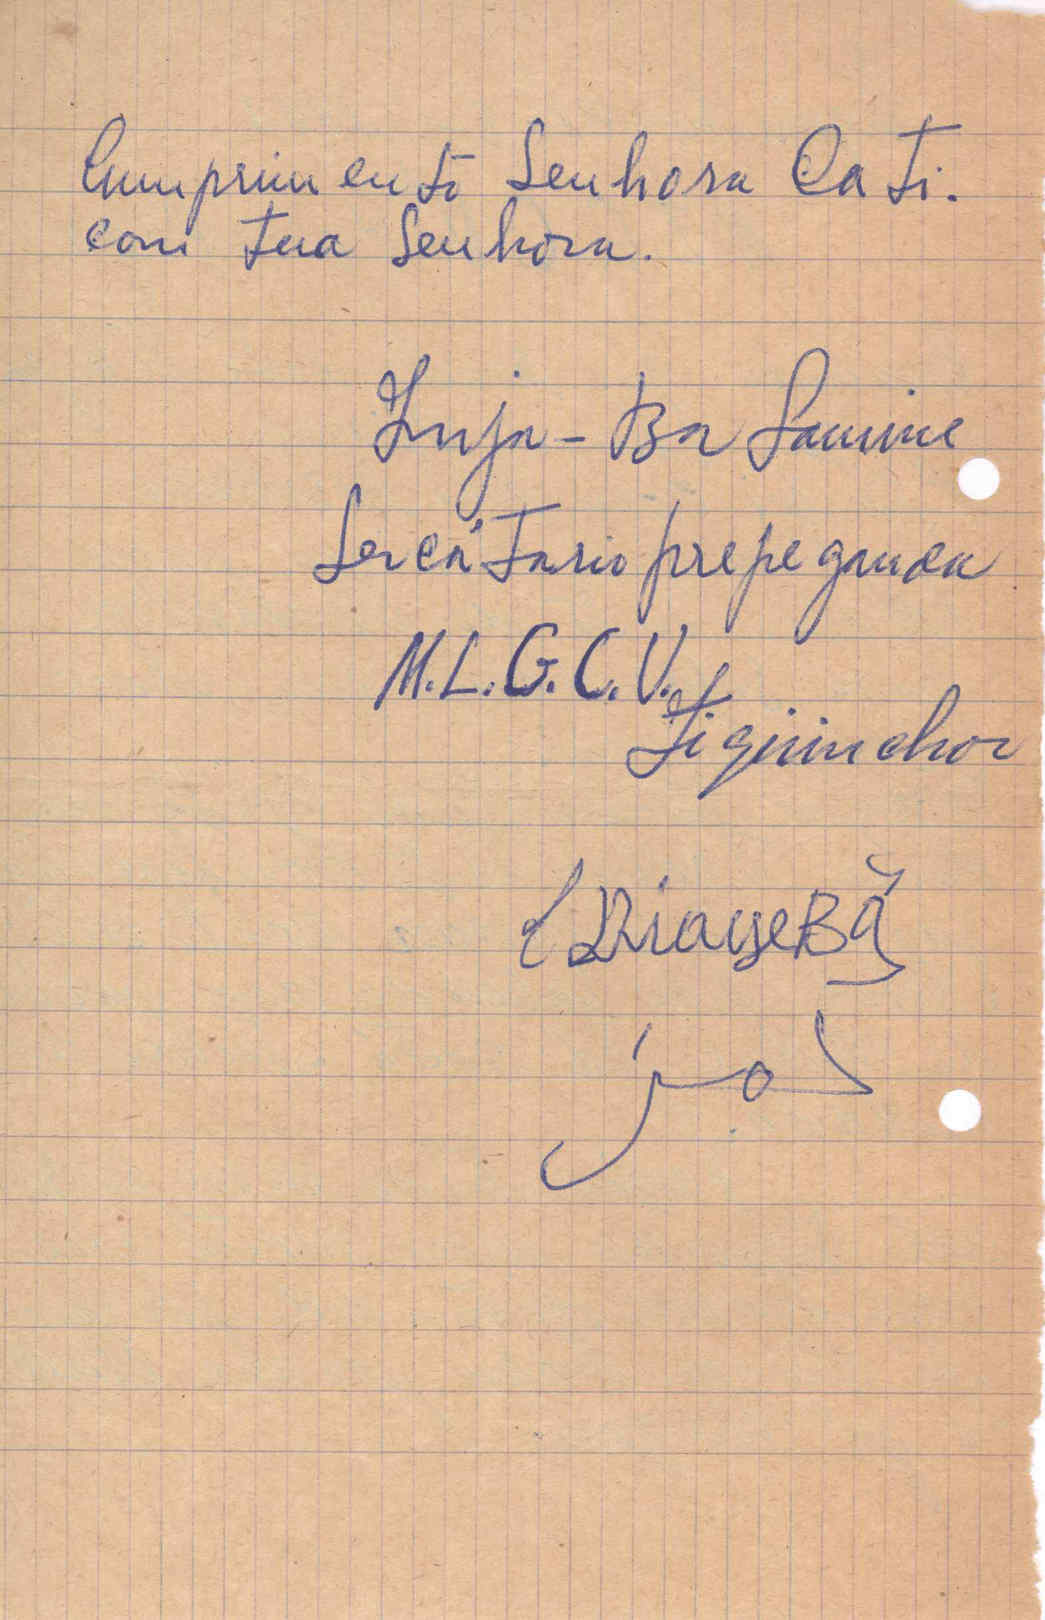 Cumprimento Senhora Cati.
com tua Senhora.
Inja - Ba Lamine
Sercátario prepeganda
M.L.G.C.V.
Ziguinchor